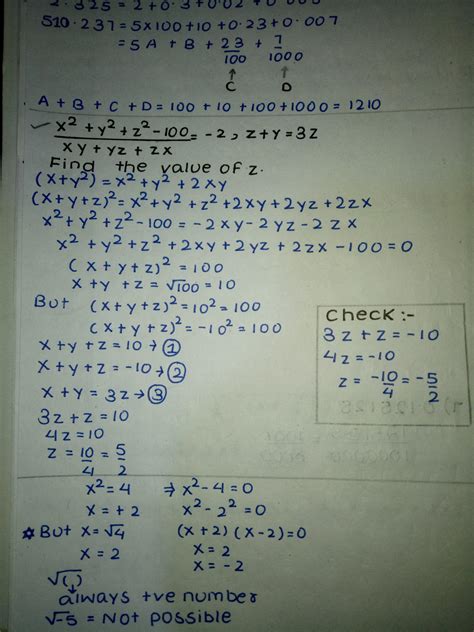 2.325 = 2+0.3+0.02+0.005
510.237 = 5x100+10+0.23+0.007
= 5A + B + 23/100 + 7/1000
↑ ↑
C D
A + B + C + D = 100 + 10 + 100 + 1000 = 1210
✓ x² + y² + z² - 100 / xy + yz + zx = -2, z+y = 3z
Find the value of z.
(x+y²) = x² + y² + 2xy
(x+y+z)² = x² + y² + z² + 2xy + 2yz + 2zx
x² + y² + z² - 100 = -2xy - 2yz - 2zx
x² + y² + z² + 2xy + 2yz + 2zx - 100 = 0
(x + y + z)² = 100
x + y + z = √100 = 10
But (x + y + z)² = 10² = 100
(x + y + z)² = -10² = 100
x + y + z = 10 → ①
x + y + z = -10 → ②
x + y = 3z → ③
3z + z = 10
4z = 10
z = 10/4 = 5/2
Check :-
3z + z = -10
4z = -10
z = -10/4 = -5/2
x² = 4 ⇒ x² - 4 = 0
x = + 2 x² - 2² = 0
☆ But x = √4 (x + 2) (x - 2) = 0
x = 2 x = 2
x = -2
√( )
always +ve number
√-5 = Not possible